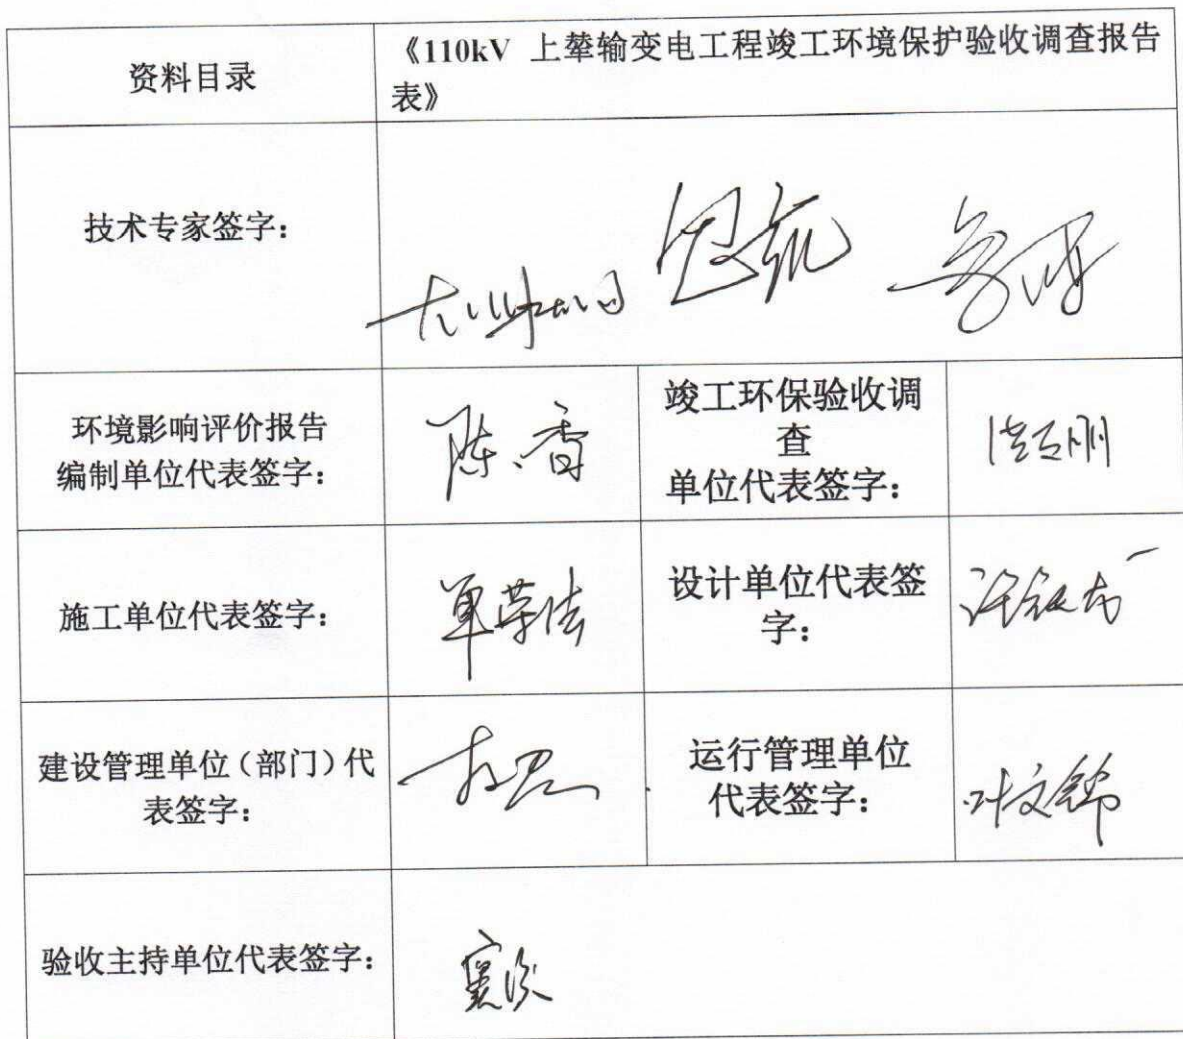 资料目录
《110kV 上犖输变电工程竣工环境保护验收调查报告
表》
技术专家签字：
环境影响评价报告
编制单位代表签字：
陈香
竣工环保验收调
查
单位代表签字：
施工单位代表签字：
单荣法
设计单位代表签
字：
建设管理单位（部门）代
表签字：
运行管理单位
代表签字：
叶文锦
验收主持单位代表签字：